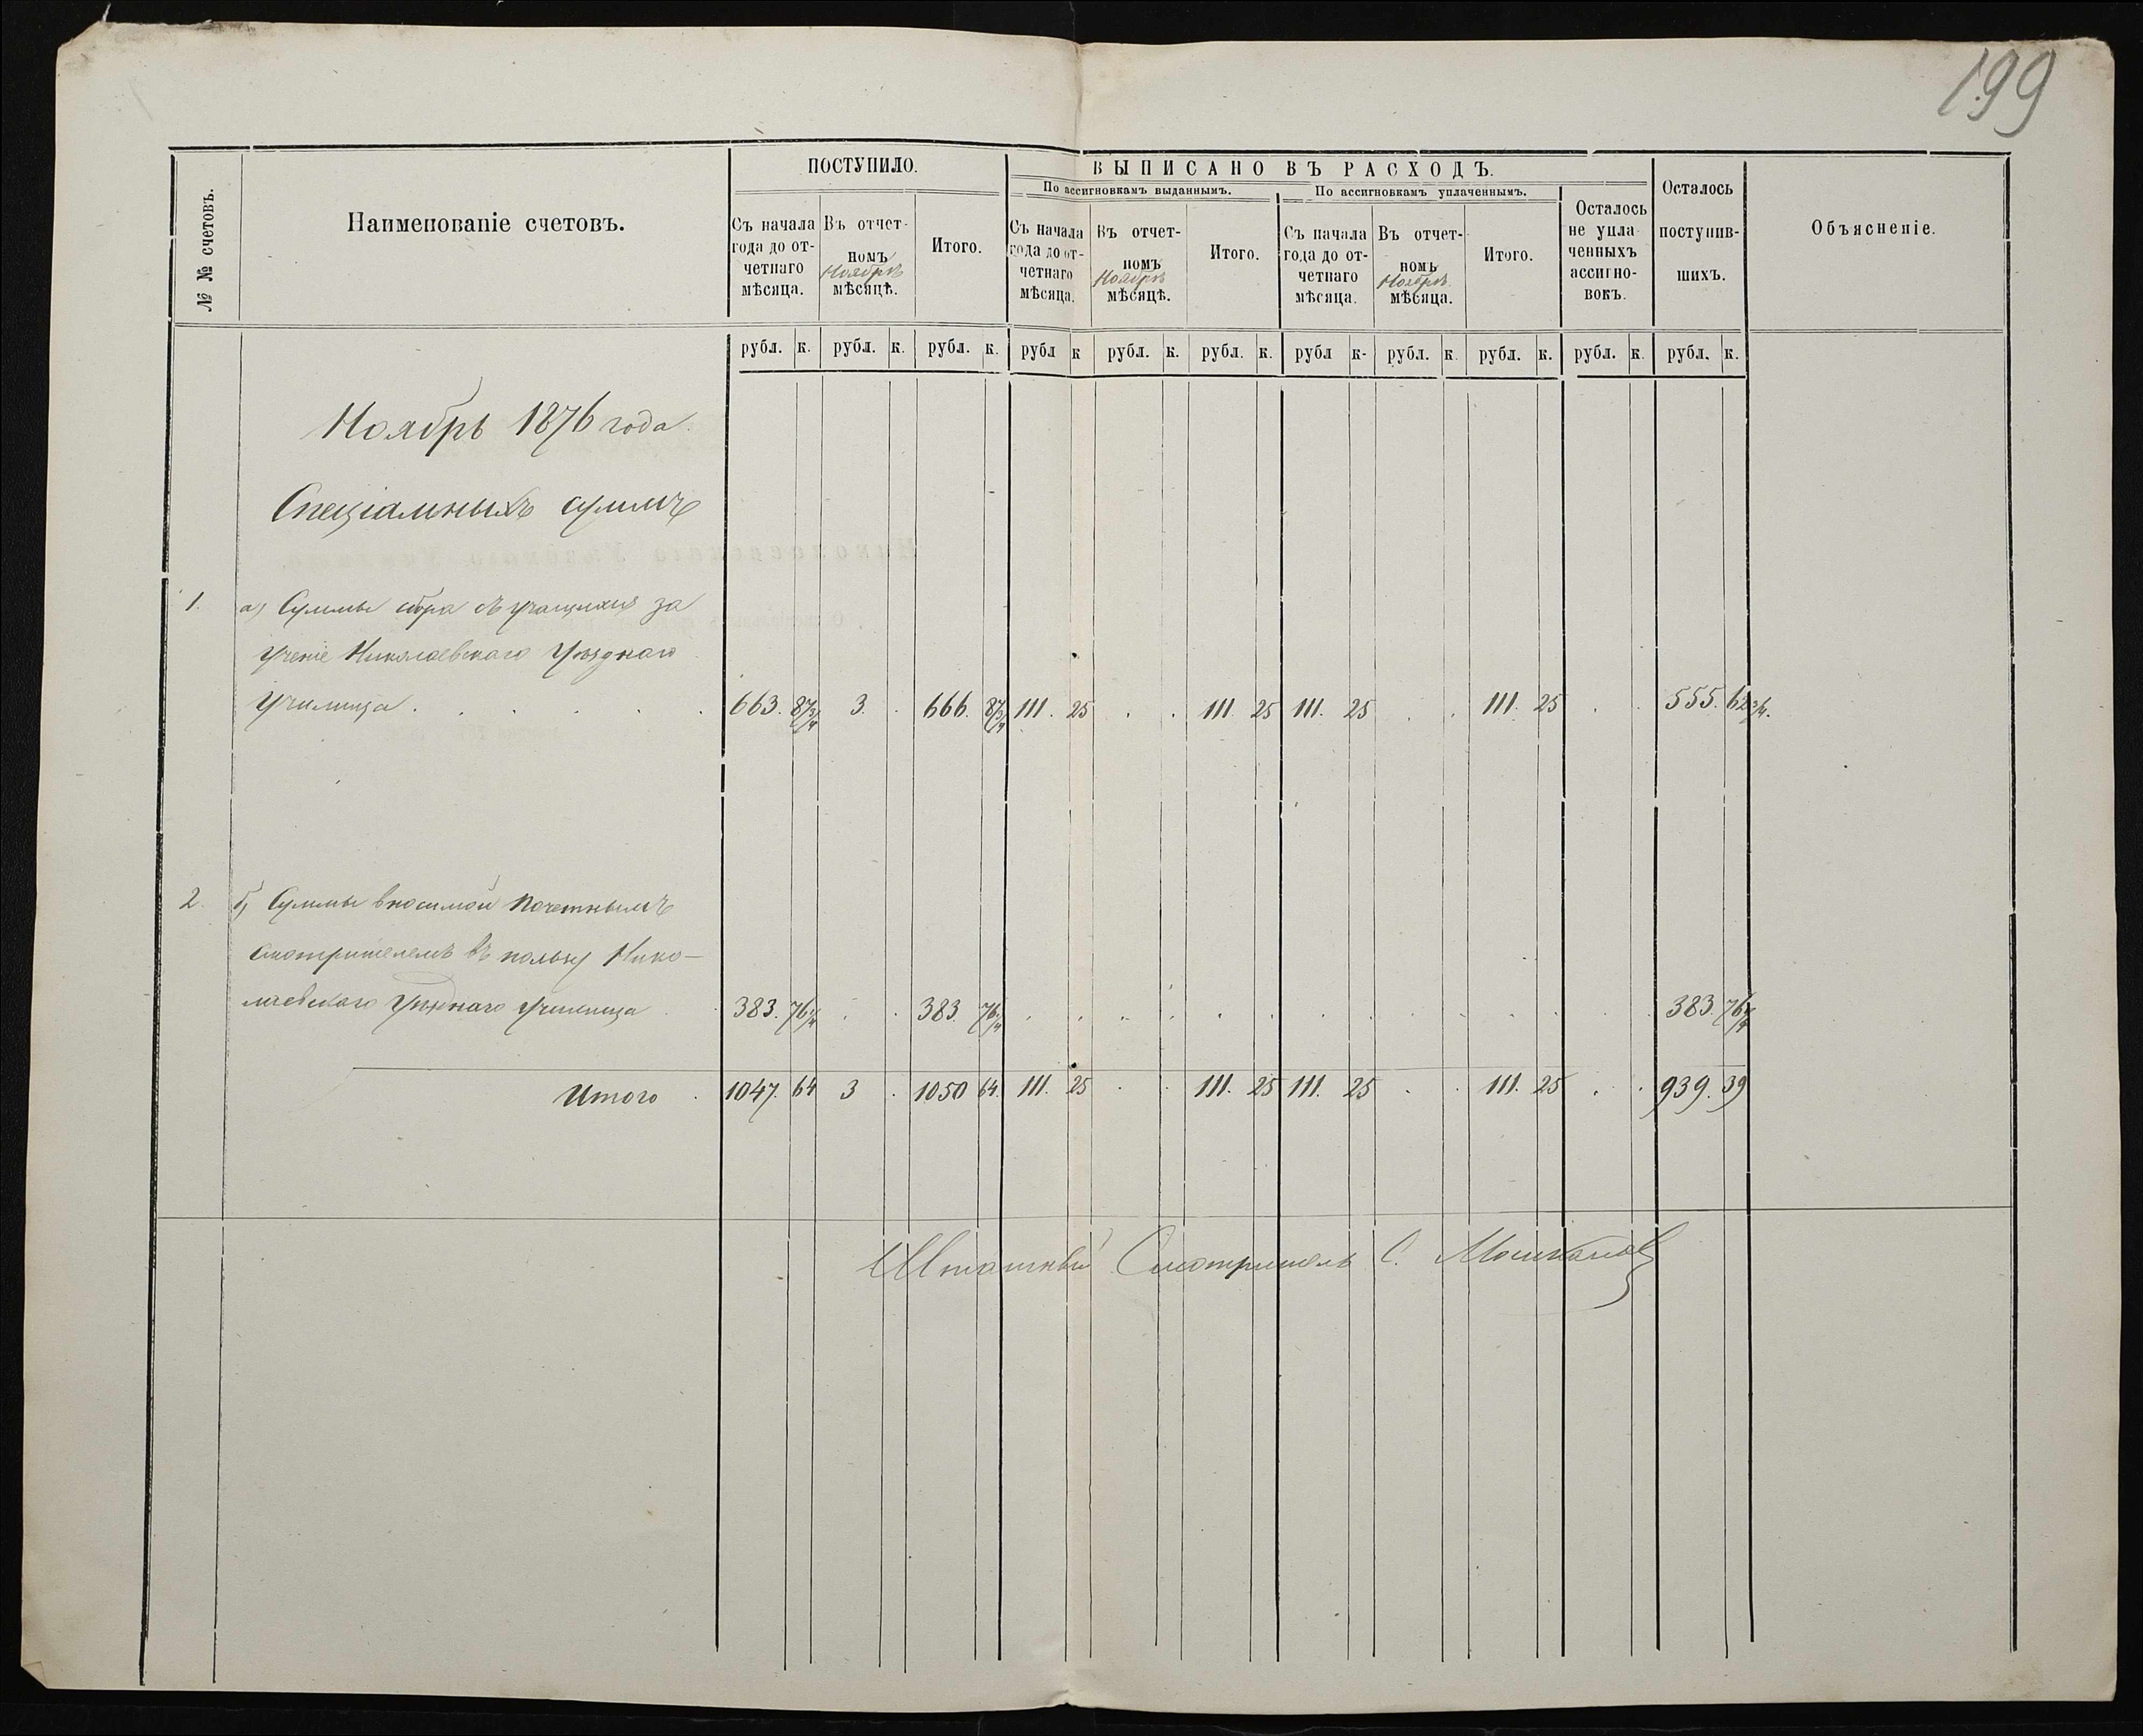 199
№ № счетовъ.
Наименованіе счетовъ.
ПОСТУПИЛО.
Съ начала года до отчетнаго мѣсяца.
Въ отчетномъ Ноябрѣ мѣсяцѣ.
Итого.
ВЫПИСАНО ВЪ РАСХОДЪ.
По ассигновкамъ выданнымъ.
Съ начала года до отчетнаго мѣсяца.
Въ отчетномъ Ноябрѣ мѣсяцѣ.
Итого.
По ассигновкамъ уплаченнымъ.
Съ начала года до отчетнаго мѣсяца.
Въ отчетномъ Ноябрѣ мѣсяца.
Итого.
Осталось не уплаченныхъ ассигновокъ.
Осталось поступившихъ.
Объясненіе.
рубл. к. рубл. к. рубл. к. рубл к рубл. к. рубл. к. рубл к- рубл. к. рубл. к. рубл. к. рубл. к.
Ноябрь 1876 года.
Спеціальныхъ суммъ
1. а) Суммы сбора съ учащихся за
ученіе Николаевскаго Уѣзднаго
Училища . . . . . . 663. 87 3/4 3. . 666. 87 3/4 111. 25 . . 111. 25 111. 25 . . 111. 25 . . 555. 62 3/4.
2. б) Суммы вносимой Почетнымъ
Смотрителемъ въ пользу Нико-
лаевскаго Уѣзднаго Училища . . 383. 76 1/4 . . 383. 76 1/4 . . . . . . . . . . . . . . 383. 76 1/4
Итого . 1047. 64 3 . 1050 64. 111. 25 . . 111. 25 111. 25 . . 111. 25 . . 939. 39
Штатный Смотритель С.